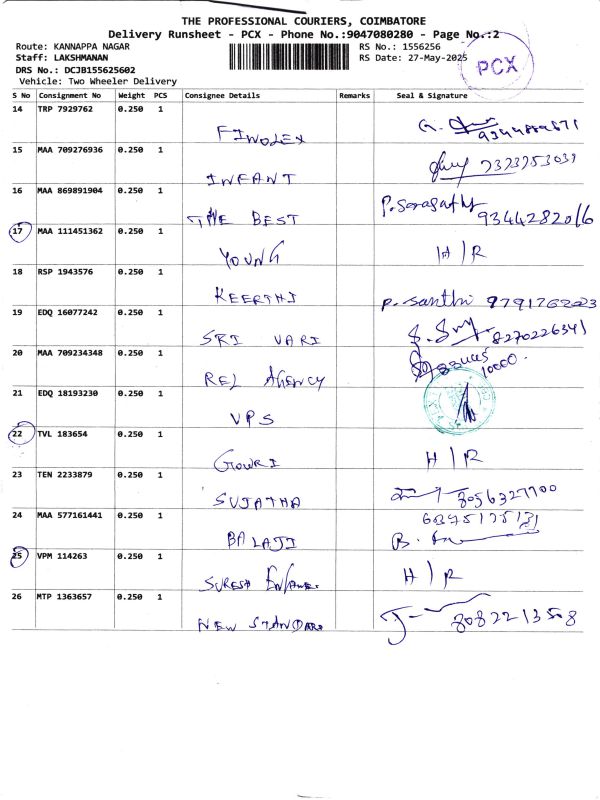 THE PROFESSIONAL COURIERS, COIMBATORE
Delivery Runsheet - PCX - Phone No.:9047080280 - Page No.:2
Route: KANNAPPA NAGAR RS No.: 1556256
Staff: LAKSHMANAN RS Date: 27-May-2025
PCX
DRS No.: DCJB155625602
Vehicle: Two Wheeler Delivery
S No Consignment No Weight PCS Consignee Details Remarks Seal & Signature
14 TRP 7929762 0.250 1
FINOLEX
15 MAA 709276936 0.250 1
INFANT 7373753031
16 MAA 869891904 0.250 1
THE BEST 9344282016
17 MAA 111451362 0.250 1
YOUNG H/R
18 RSP 1943576 0.250 1
KEERTHI P. Santhi
19 EDQ 16077242 0.250 1
SRI VARI 8270226341
20 MAA 709234348 0.250 1
REL AGENCY 10000.
21 EDQ 18193230 0.250 1
VPS
22 TVL 183654 0.250 1
GOWRI H/R
23 TEN 2233879 0.250 1
SUJATHA 8056327700
24 MAA 577161441 0.250 1
BALAJI B.
25 VPM 114263 0.250 1
SURESH H/R
26 MTP 1363657 0.250 1
NEW STANDARD 8082213508